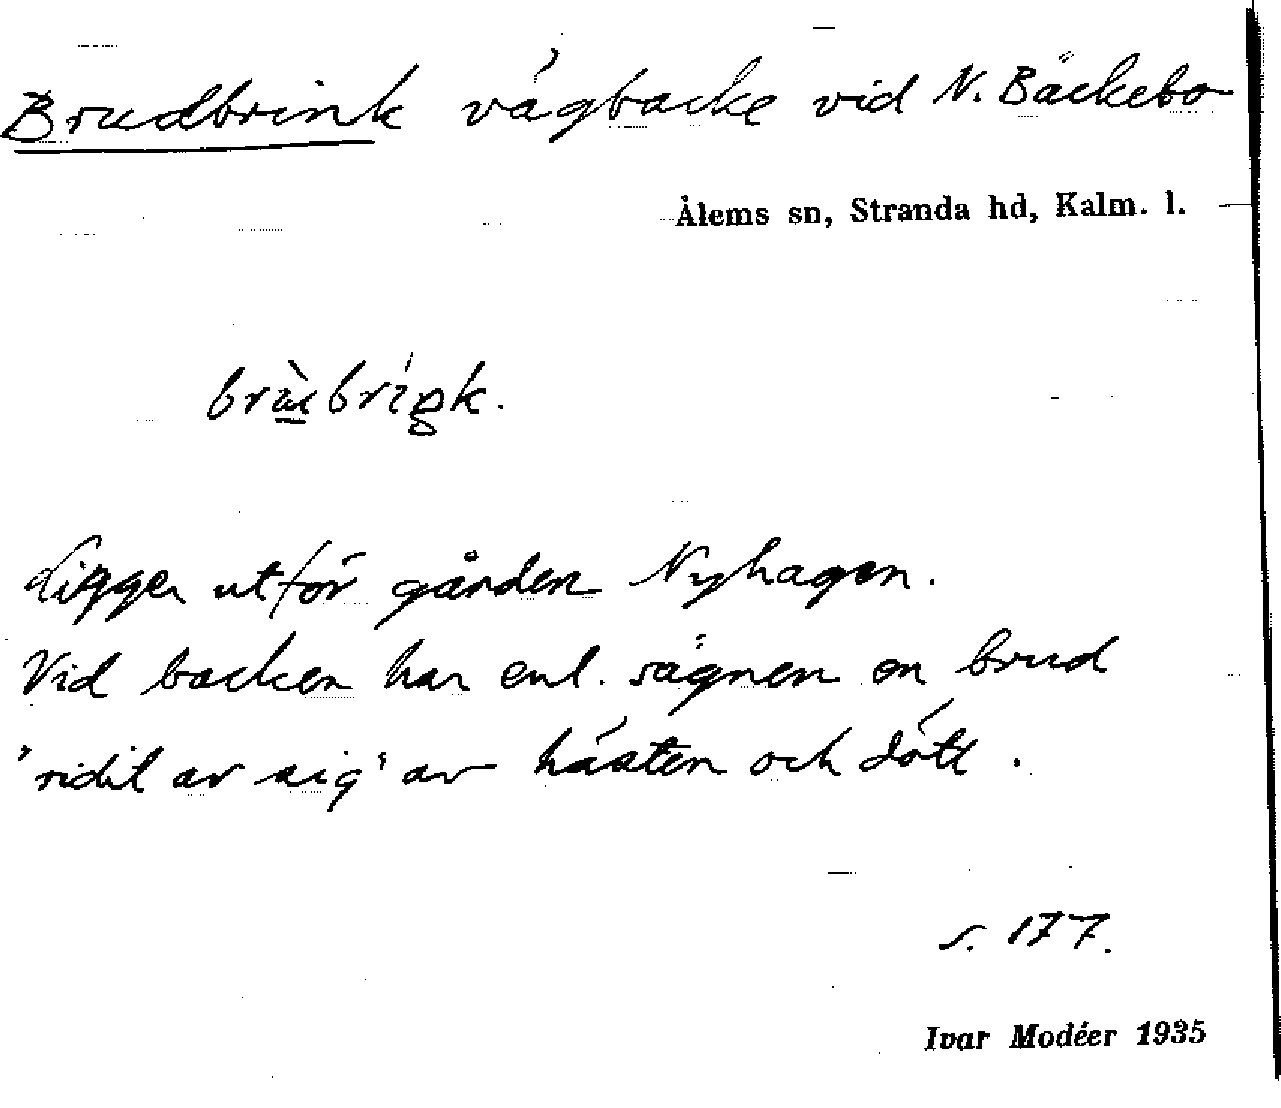 Brudbrink vägbacke vid N. Bäckebo
Ålems sn, Stranda hd, Kalm. l.
Ligger utför gården Nyhagen.
Vid backen har enl. sägnen en brud
'ridit av sig' av hästen och dött.
s. 177.
Ivar Modéer 1935